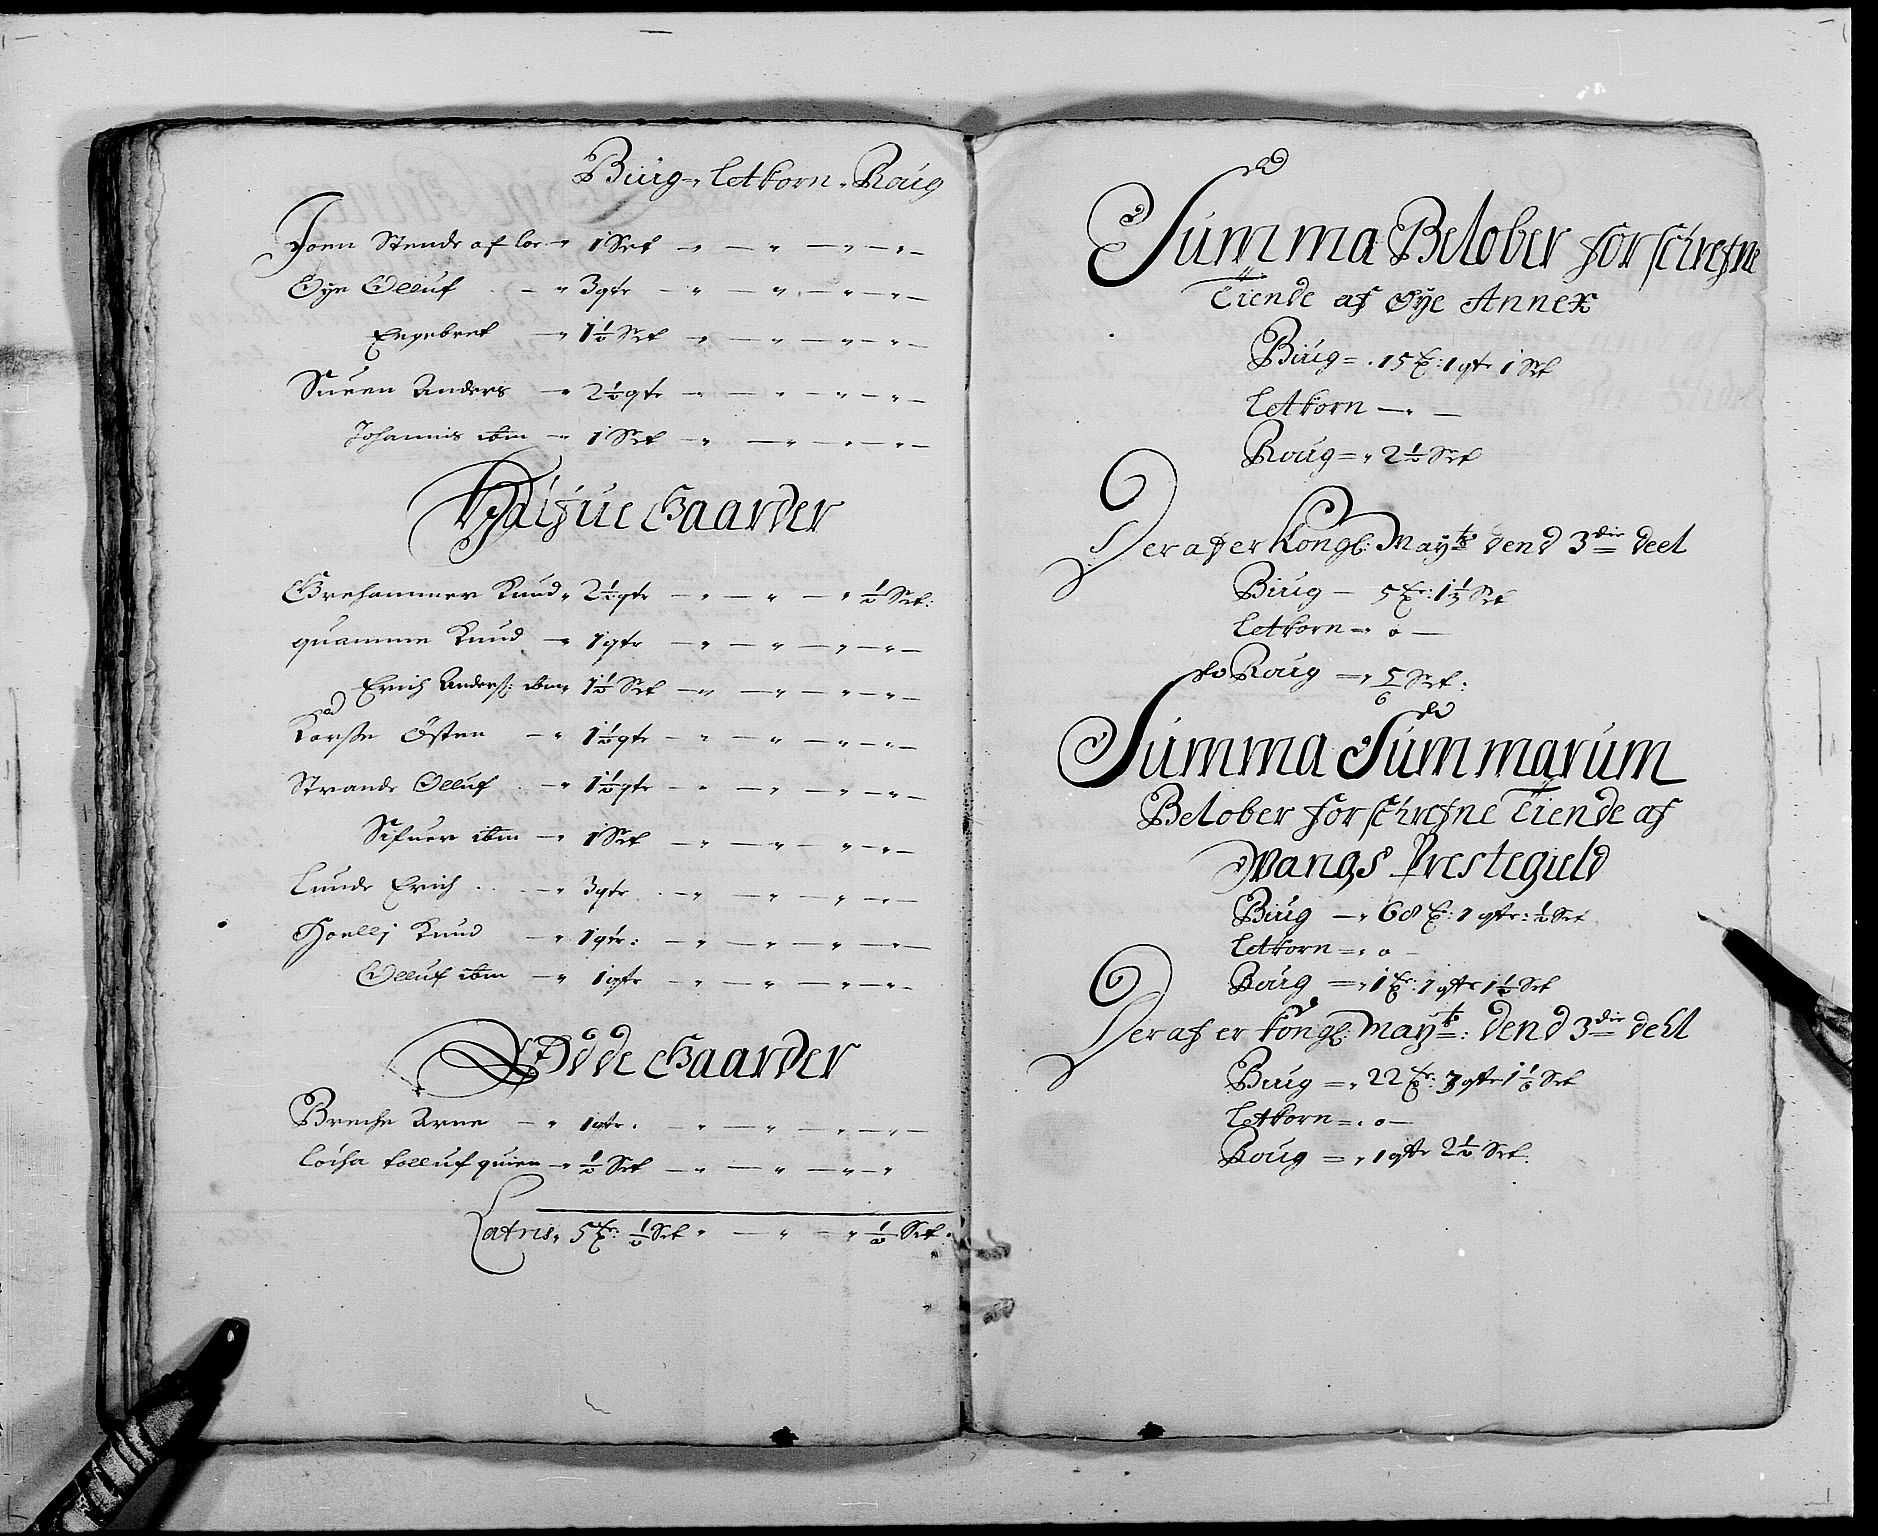 Biug - Letkorn - Roug
Joen Stende af loe - 1 Set - - - - - -
Øye Olluf - 3 qtr - - - - - -
Engebret - 1½ Set - - - - - -
Sueen Anders - 2½ qtr - - - - - -
Johannis ibm - 1 Set - - - - - -
Halfue Gaarder
Grehammer Knud - 2½ qtr - - - - ½ Set:
quamme Knud - 1 qtr - - - - - -
Erich Anderß: ibm - 1½ Set - - - - - -
Korsse Östen - 1½ qtr - - - - - -
Strande Olluf - 1½ qtr - - - - - -
Sifuer ibm - 1 Set - - - - - -
Lunde Erich - 3 qtr - - - - - -
Hoellj Knud - 1 qtr: - - - - - -
Olluf ibm - 1 qtr - - - - - -
Øde Gaarder
Breche Arne - 1 qtr. - - - - - -
tolluf quien - ½ Set - - - - -
Latris, 5 Tr: ½ Set - - - ½ Set.
Summa Beløber forschrefne
Tiende af Øye Annex
Biug = 15 Tr: 1 qtr 1 Set
Letkorn - - -
Roug = 2½ Set
Deraf er Kongl: Mayts dend 3die deel
Biug - 5 Tr: 1⅓ Set
Letkorn = 0 -
Roug = 5/6 Set:
Summa Summarum
Beløber forschrefne Tiende af
Wangs Prestegield
Biug - 68 Tr: 1 qtr: ½ Set
Letkorn = 0 -
Roug = 1 Tr: 1 qtr 1½ Set
Deraf er Kongl: Mayts: dend 3die dehl
Biug = 22 Tr: 3 qtr 1⅙ Set
Letkorn = 0 -
Roug = 1 qtr 2½ Set: